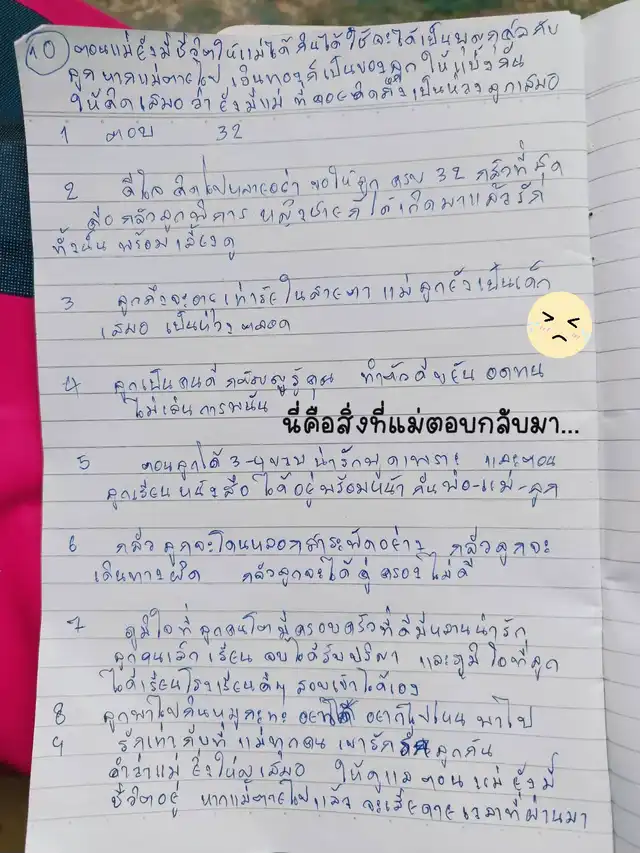 10 ตอนแม่ยังมีชีวิตให้แม่ได้กินได้ใช้จะได้เป็นบุญกุศลกับ
ลูก หากแม่ตายไป เงินทองก็เป็นของลูก ให้แบ่งกัน
ให้คิดเสมอ ว่ายังมีแม่ ที่คอยคิดถึงเป็นห่วงลูกเสมอ
1 ตอบ 32
2 ดีใจ คิดไปหลายอย่าง ขอให้ลูก ครบ 32 กลัวที่สุด
คือ กลัวลูกพิการ หญิงชายก็ได้เกิดมาแล้วรัก
ทั้งนั้น พร้อมเลี้ยงดู
3 ลูกถึงจะอายุเท่าไรในสายตา แม่ ลูกยังเป็นเด็ก
เสมอ เป็นห่วงตลอด
4 ลูกเป็นคนดี กตัญญูรู้คุณ ทำตัวดีขยัน อดทน
ไม่เล่นการพนัน
นี่คือสิ่งที่แม่ตอบกลับมา...
5 ตอนลูกได้ 3-4ขวบ น่ารักพูดเพราะ และตอน
ลูกเรียนหนังสือ ได้อยู่พร้อมหน้า กันพ่อ-แม่-ลูก
6 กลัว ลูกจะโดนหลอกสารพัดอย่าง กลัวลูกจะ
เดินทางผิด กลัวลูกจะได้คู่ครองไม่ดี
7 ภูมิใจที่ ลูกคนโตมีครอบครัวที่ดีมีหลานน่ารัก
ลูกคนเล็ก เรียน จบได้รับปริญญา และภูมิใจที่ลูก
ได้เรียนโรงเรียนดีๆ สอบเข้าได้เอง
8 ลูกพาไปกินหมูกะทะ อยากไปไหน พาไป
9 รักเท่ากับที่ แม่ทุกคน เขารัก ลูกกัน
คำว่าแม่ ยิ่งใหญ่เสมอ ให้ดูแลตอน แม่ ยังมี
ชีวิตอยู่ หากแม่ตายไปแล้ว จะเสียดายเวลาที่ผ่านมา